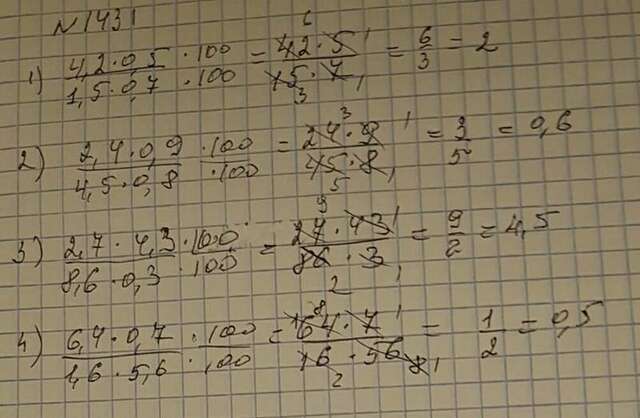 N 1431
1) 4,2·0,5/1,5·0,7 ·100/·100 = 42·5/15·7 = 6/3 = 2
2) 2,4·0,9/4,5·0,8 ·100/·100 = 24·9/45·8 = 3/5 = 0,6
3) 2,7·4,3/8,6·0,3 ·100/·100 = 27·43/86·3 = 9/2 = 4,5
4) 6,4·0,7/1,6·5,6 ·100/·100 = 64·7/16·56 = 1/2 = 0,5